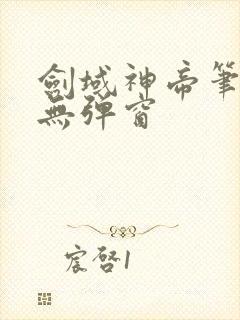 劍域神帝筆
無彈窗
宸啓1